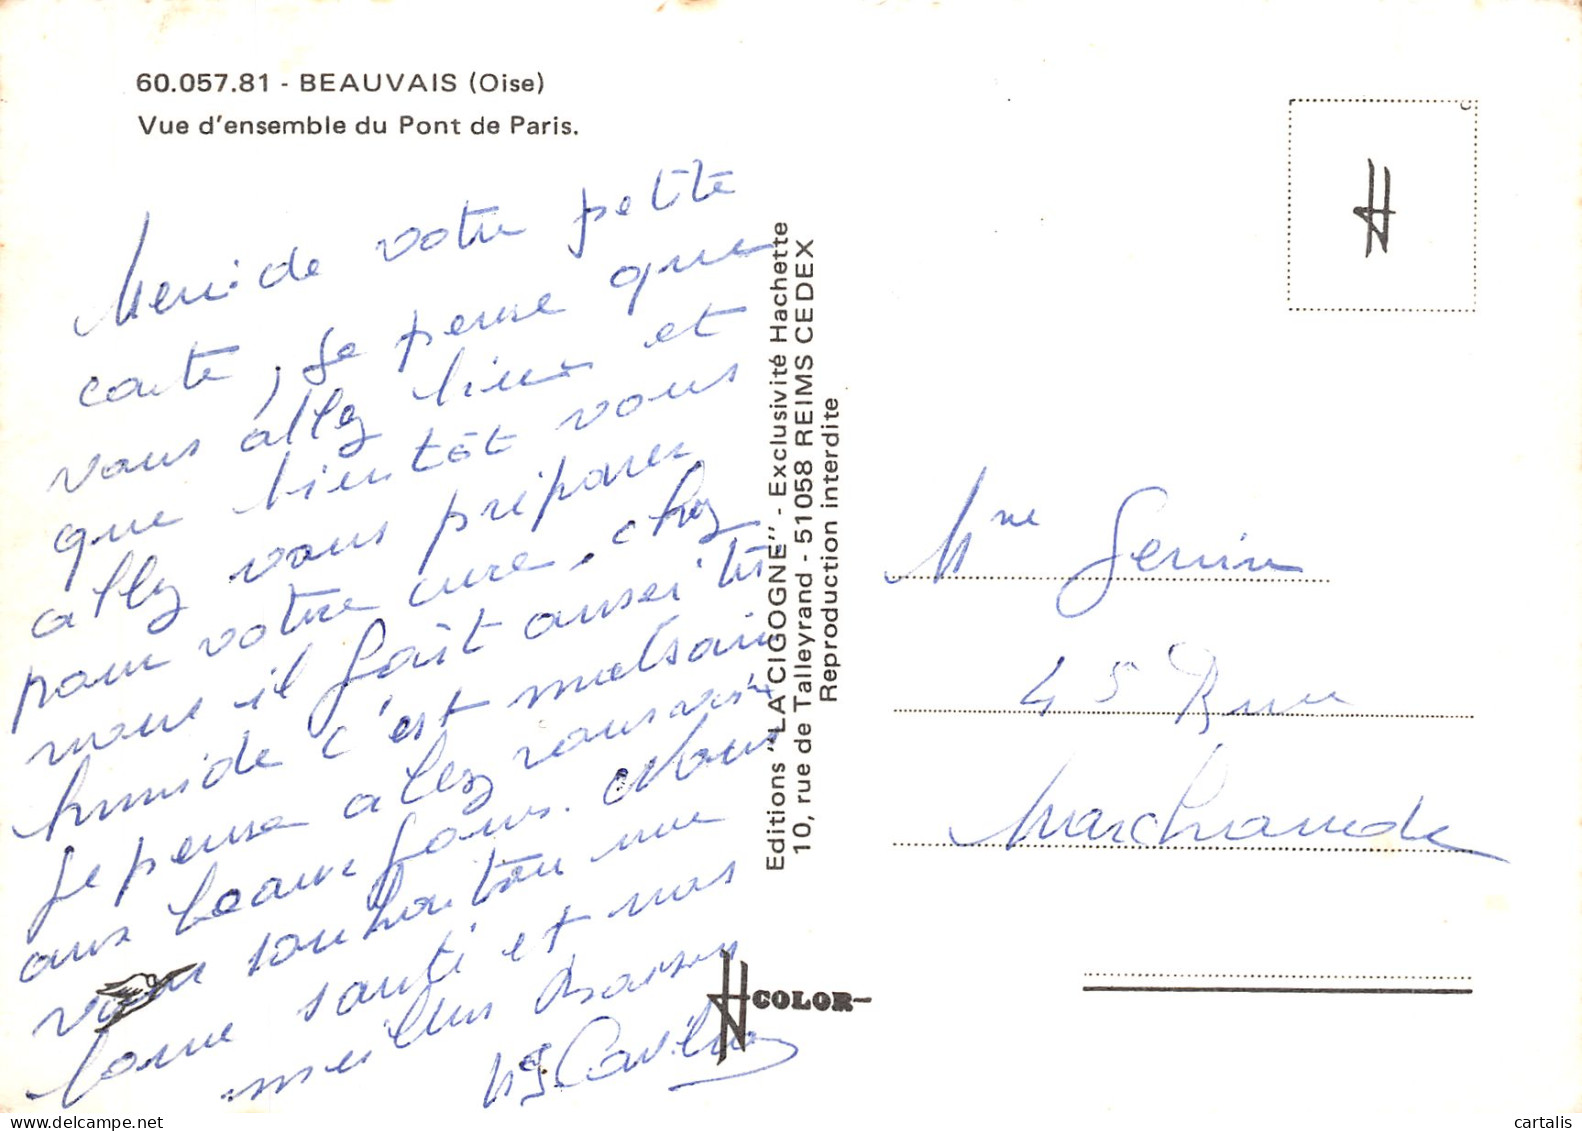 60.057.81 - BEAUVAIS (Oise)
Vue d'ensemble du Pont de Paris.
Merci de votre petite
carte, je pense que
vous allez bien et
que bientôt vous
allez vous préparer
pour votre cure, chez
nous il fait aussi très
humide c'est malsain
je pense allez vous voir
aux beaux jours. Nous
vous souhaiton une
bonne santé et nos
meilleurs baisers
Editions "LA CIGOGNE" - Exclusivité Hachette
10, rue de Talleyrand - 51058 REIMS CEDEX
Reproduction interdite
H COLOR
H
Mme
45 Rue
Marchande
cartalis
delcampe.net